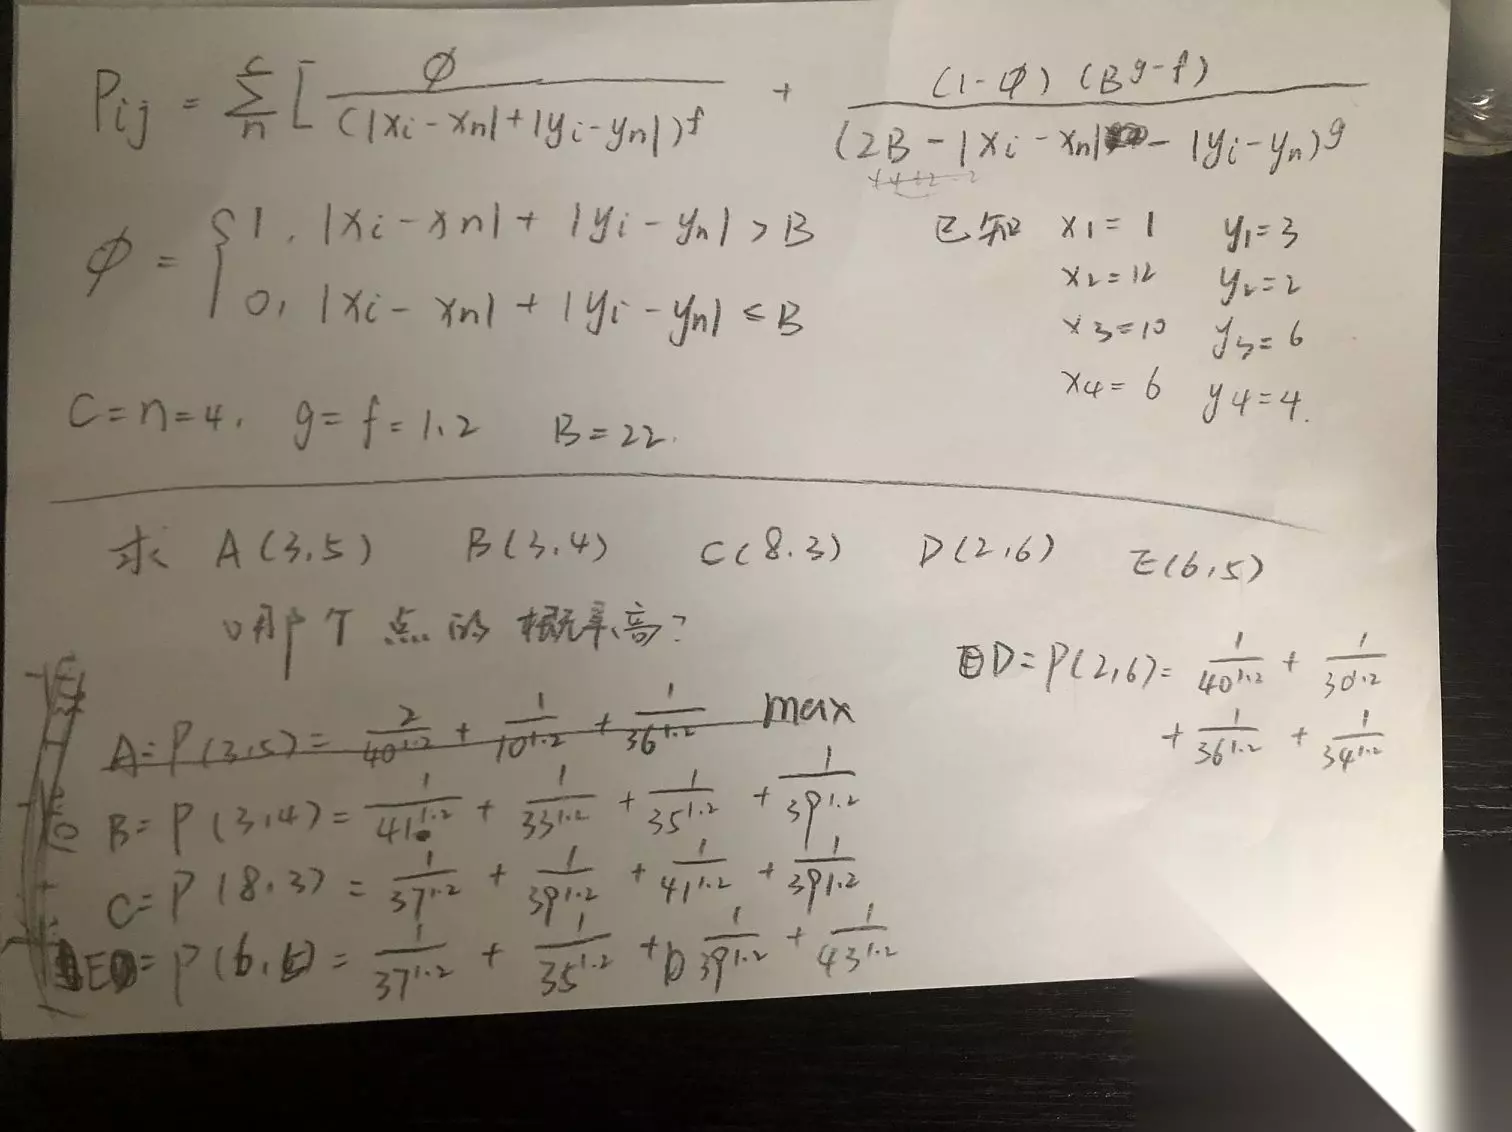 Pij = Σ_n^c [ ∅ / (|xi-xn|+|yi-yn|)^f + (1-∅)(B^g-f) / (2B-|xi-xn|-|yi-yn|)^g
∅ = { 1, |xi-xn|+|yi-yn|>B
0, |xi-xn|+|yi-yn|≤B
已知 x1=1 y1=3
x2=12 y2=2
x3=10 y3=6
x4=6 y4=4.
C=n=4, g=f=1.2 B=22.
求 A(3.5) B(3.4) C(8.3) D(2,6) E(6,5)
哪个点的概率高?
A=P(3,5)= 2/40^1.2 + 1/10^1.2 + 1/36^1.2 max
B=P(3,4)= 1/41^1.2 + 1/33^1.2 + 1/35^1.2 + 1/39^1.2
C=P(8.3)= 1/37^1.2 + 1/39^1.2 + 1/41^1.2 + 1/39^1.2
E=P(6,5)= 1/37^1.2 + 1/35^1.2 + 1/39^1.2 + 1/43^1.2
D=P(2,6)= 1/40^1.2 + 1/30^1.2
+ 1/36^1.2 + 1/34^1.2